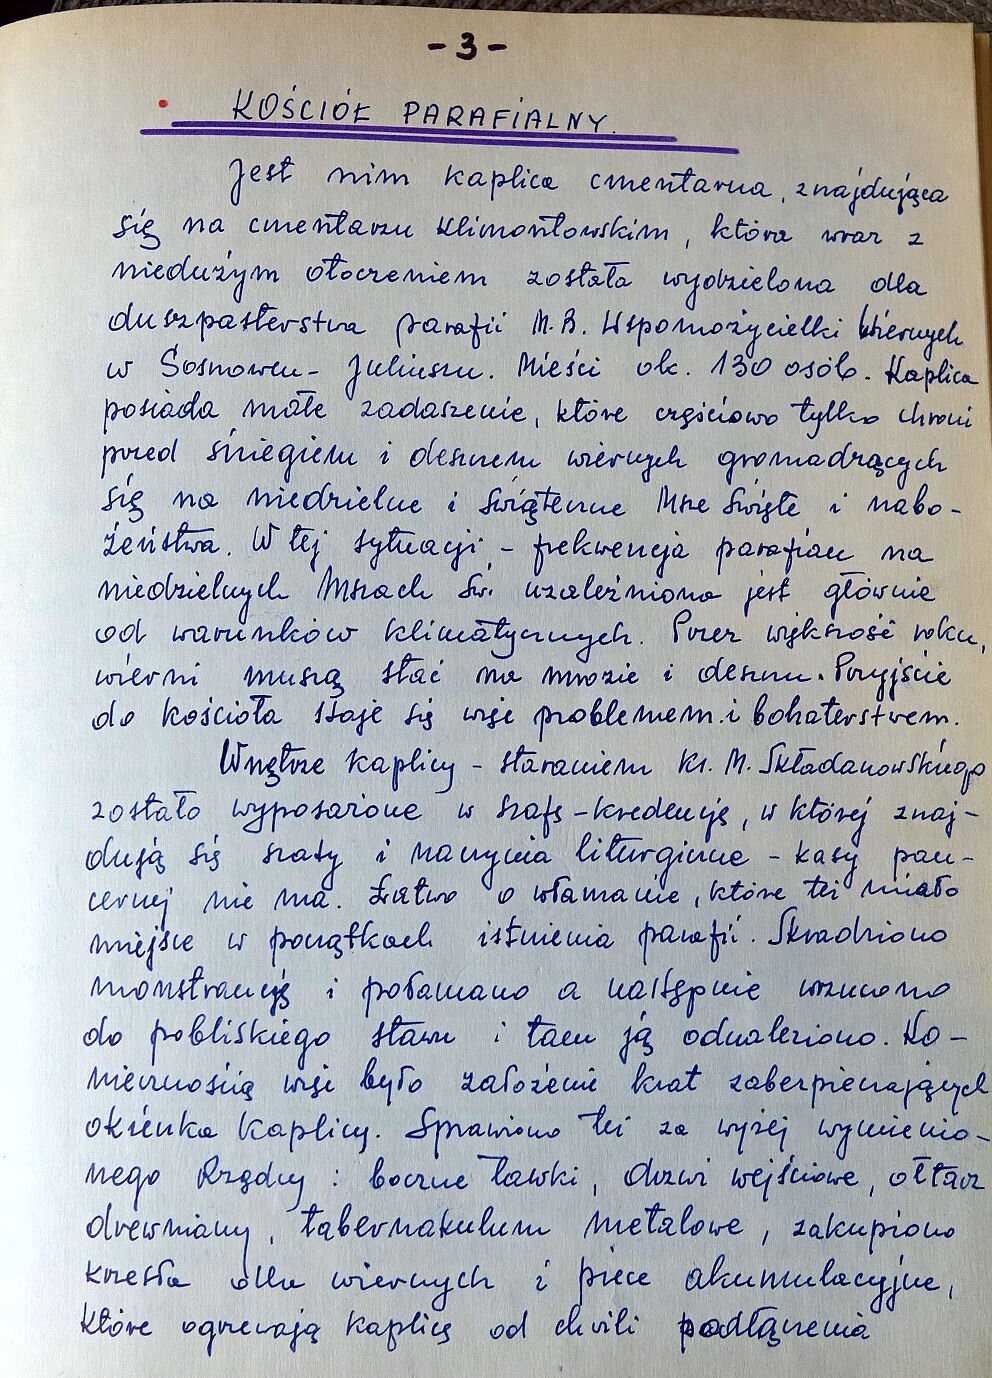 - 3 -
KOŚCIÓŁ PARAFIALNY.
Jest nim kaplica cmentarna, znajdująca
się na cmentarzu Klimontowskim, która wraz z
niedużym otoczeniem została wydzielona dla
duszpasterstwa parafii M.B. Wspomożycielki Wiernych
w Sosnowcu - Juliuszu. Mieści ok. 130 osób. Kaplica
posiada małe zadaszenie, które częściowo tylko chroni
przed śniegiem i deszczem wiernych gromadzących
się na niedzielne i świąteczne Msze Święte i nabo-
żeństwa. W tej sytuacji - frekwencja parafian na
niedzielnych Mszach Św. uzależniona jest głównie
od warunków klimatycznych. Przez większość roku,
wierni muszą stać na mrozie i deszczu. Przyjście
do kościoła staje się więc problemem i bohaterstwem.
Wnętrze kaplicy - staraniem Ks. M. Składanowskiego
zostało wyposażone w szafę - kredencję, w której znaj-
dują się szaty i naczynia liturgiczne - kasy pan-
cernej nie ma. Łatwo o włamanie, które też miało
miejsce w początkach istnienia parafii. Skradziono
monstrancję i połamano a następnie wrzucono
do pobliskiego stawu i tam ją odnaleziono. Ko-
niecznością więc było założenie krat zabezpieczających
okienka kaplicy. Sprawiono też za wyżej wymienio-
nego Rządcy : boczne ławki, drzwi wejściowe, ołtarz
drewniany, tabernakulum metalowe, zakupiono
krzesła dla wiernych i piece akumulacyjne,
które ogrzewają kaplicę od chwili podłączenia